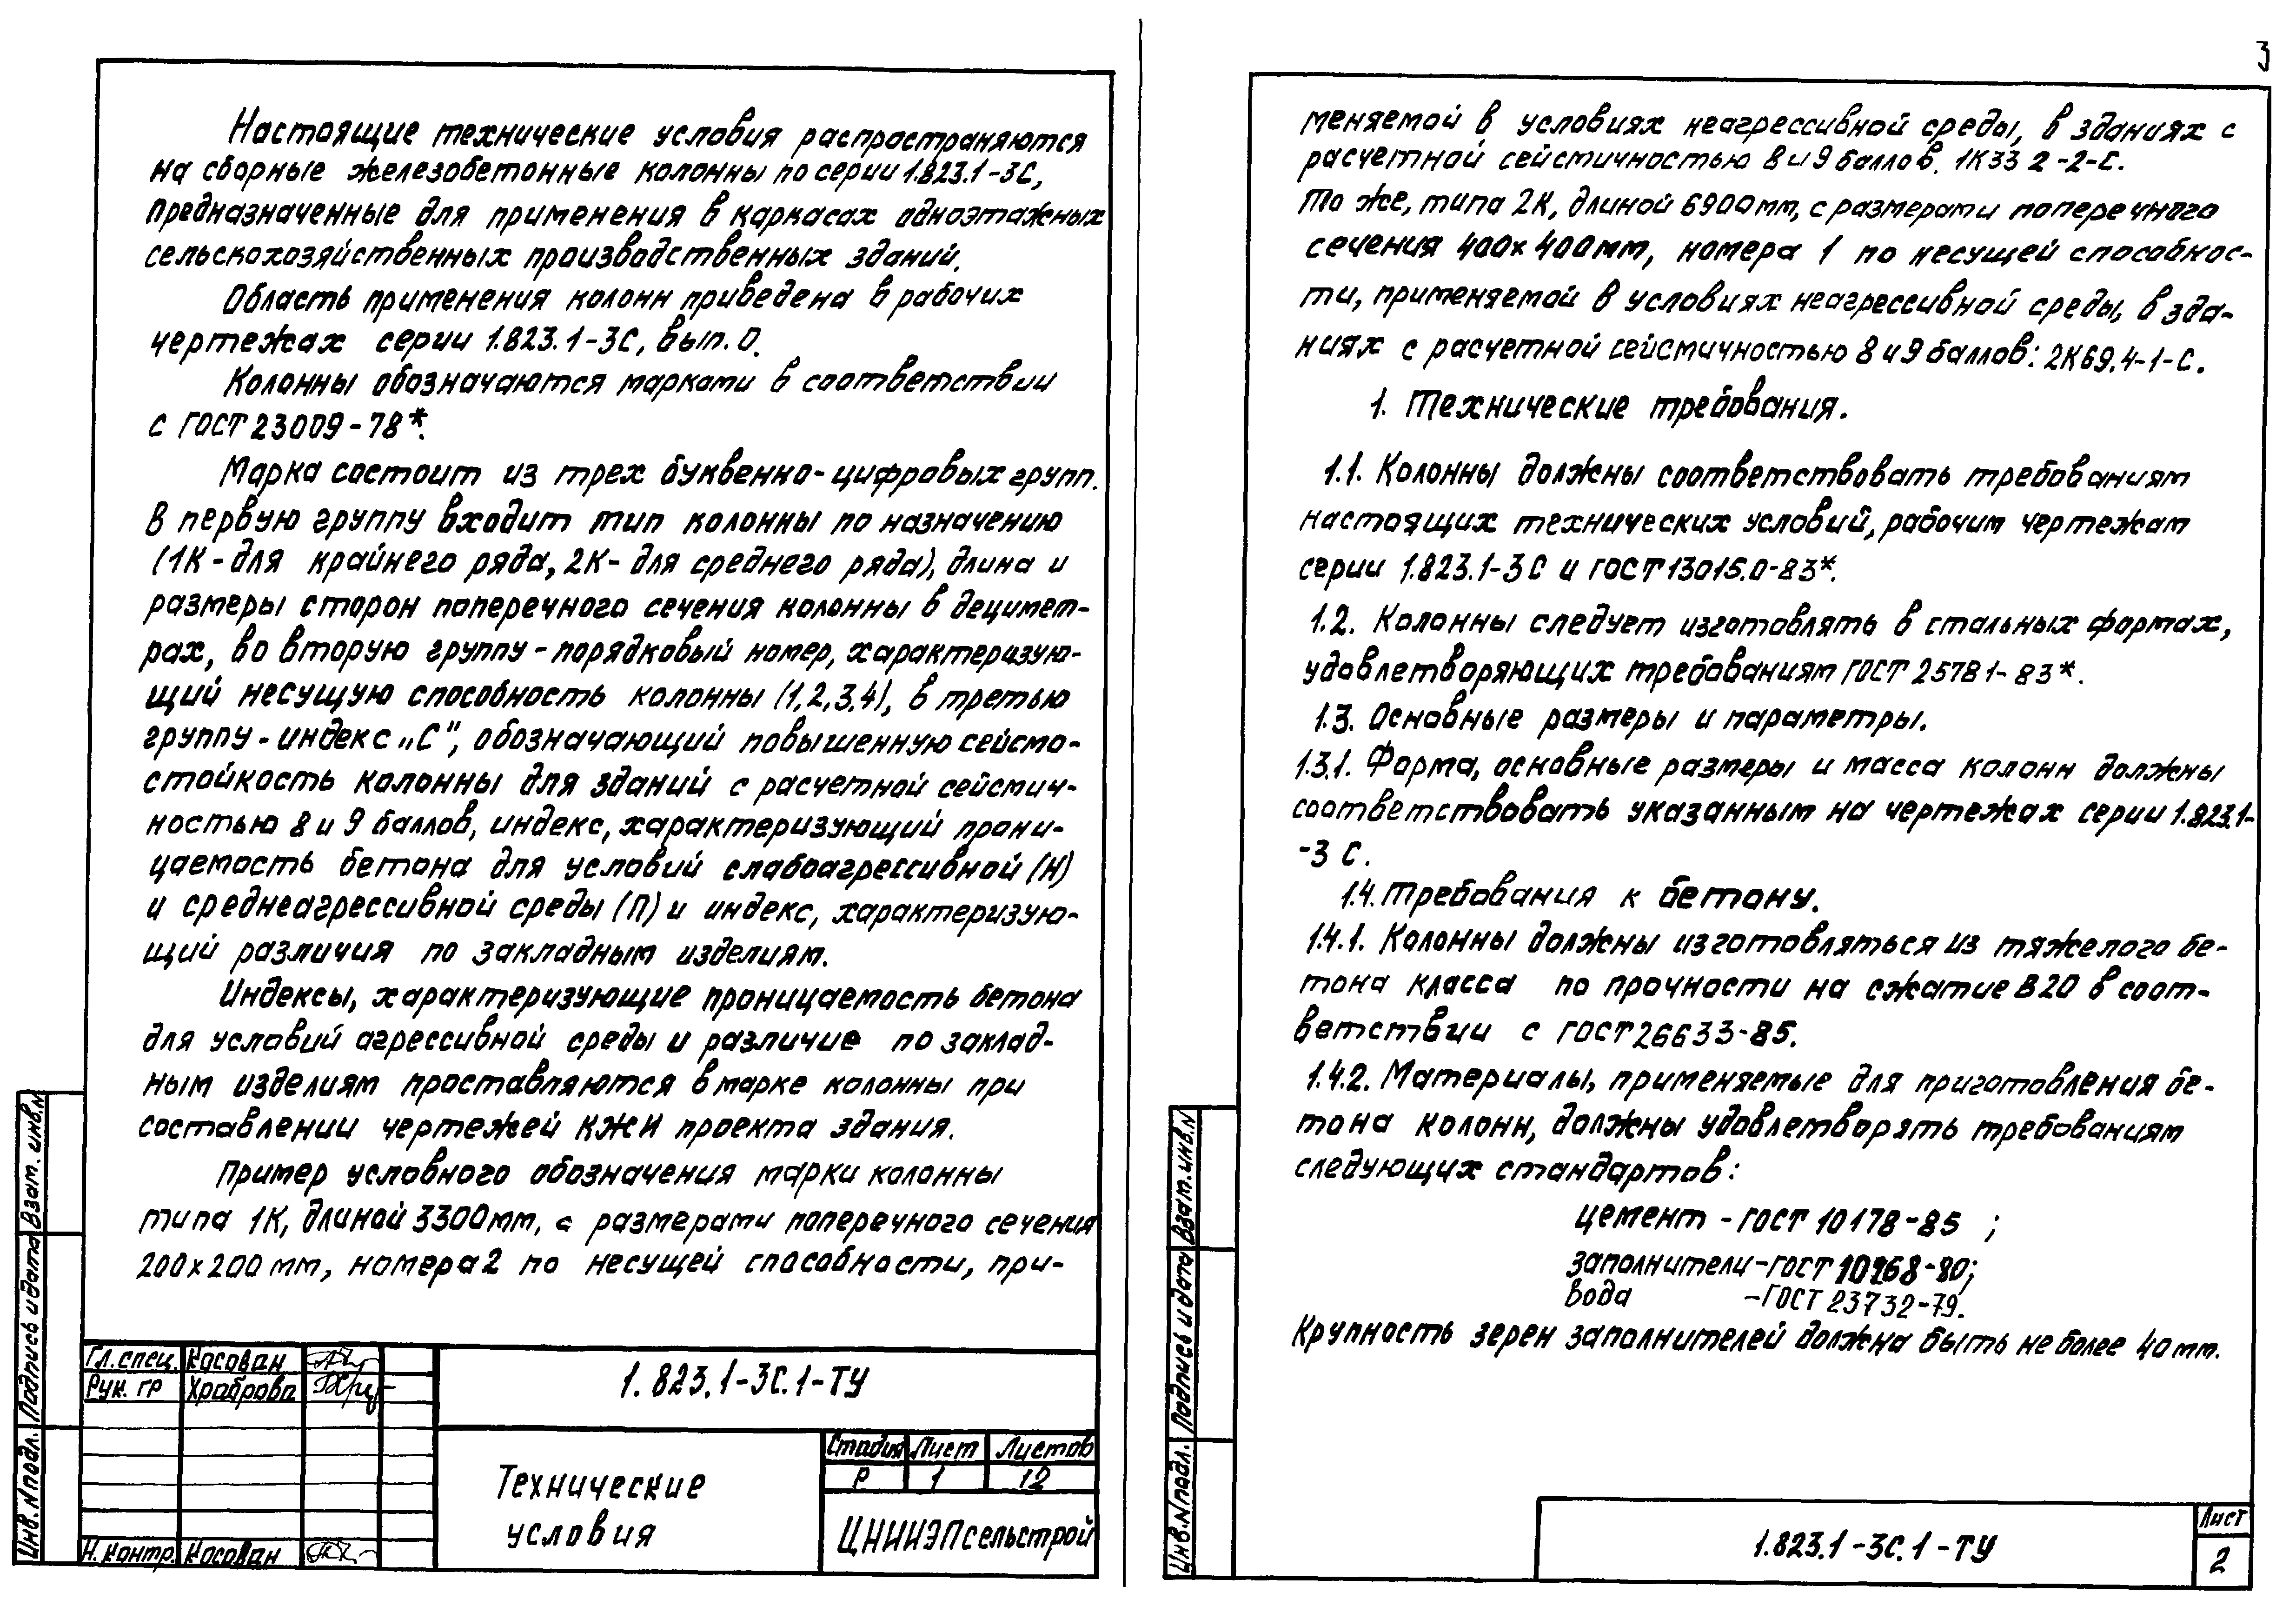 Настоящие технические условия распространяются
на сборные железобетонные колонны по серии 1.823.1-3С,
предназначенные для применения в каркасах одноэтажных
сельскохозяйственных производственных зданий.
Область применения колонн приведена в рабочих
чертежах серии 1.823.1-3С, вып. 0.
Колонны обозначаются марками в соответствии
с ГОСТ 23009-78*.
Марка состоит из трех буквенно-цифровых групп.
В первую группу входит тип колонны по назначению
(1К - для крайнего ряда, 2К - для среднего ряда), длина и
размеры сторон поперечного сечения колонны в децимет-
рах, во вторую группу - порядковый номер, характеризую-
щий несущую способность колонны (1,2,3,4), в третью
группу - индекс „С", обозначающий повышенную сейсмо-
стойкость колонны для зданий с расчетной сейсмич-
ностью 8 и 9 баллов, индекс, характеризующий прони-
цаемость бетона для условий слабоагрессивной (Н)
и среднеагрессивной среды (П) и индекс, характеризую-
щий различия по закладным изделиям.
Индексы, характеризующие проницаемость бетона
для условий агрессивной среды и различие по заклад-
ным изделиям проставляются в марке колонны при
составлении чертежей КЖИ проекта здания.
Пример условного обозначения марки колонны
типа 1К, длиной 3300мм, с размерами поперечного сечения
200х200 мм, номера 2 по несущей способности, при-
Гл. спец. Косован
Рук. гр Храброва
Н. контр. Косован
1.823.1-3С.1-ТУ
Технические
условия
Стадия Лист Листов
Р 1 12
ЦНИИЭПсельстрой
Инв.N подл. Подпись и дата Взам. инв.N
3
меняемой в условиях неагрессивной среды, в зданиях с
расчетной сейсмичностью 8 и 9 баллов. 1К33 2-2-С.
То же, типа 2К, длиной 6900мм, с размерами поперечного
сечения 400х400мм, номера 1 по несущей способнос-
ти, применяемой в условиях неагрессивной среды, в зда-
ниях с расчетной сейсмичностью 8 и 9 баллов: 2К69.4-1-С.
1. Технические требования.
1.1. Колонны должны соответствовать требованиям
настоящих технических условий, рабочим чертежам
серии 1.823.1-3С и ГОСТ 13015.0-83*.
1.2. Колонны следует изготовлять в стальных формах,
удовлетворяющих требованиям ГОСТ 25781-83*.
1.3. Основные размеры и параметры.
1.3.1. Форма, основные размеры и масса колонн должны
соответствовать указанным на чертежах серии 1.823.1-
-3 С.
1.4. Требования к бетону.
1.4.1. Колонны должны изготовляться из тяжелого бе-
тона класса по прочности на сжатие В20 в соот-
ветствии с ГОСТ 26633-85.
1.4.2. Материалы, применяемые для приготовления бе-
тона колонн, должны удовлетворять требованиям
следующих стандартов:
цемент - ГОСТ 10178-85 ;
заполнители - ГОСТ 10268-80;
вода - ГОСТ 23732-79.
Крупность зерен заполнителей должна быть не более 40мм.
1.823.1-3С.1-ТУ
Лист
2
Инв.N подл. Подпись и дата Взам. инв.N